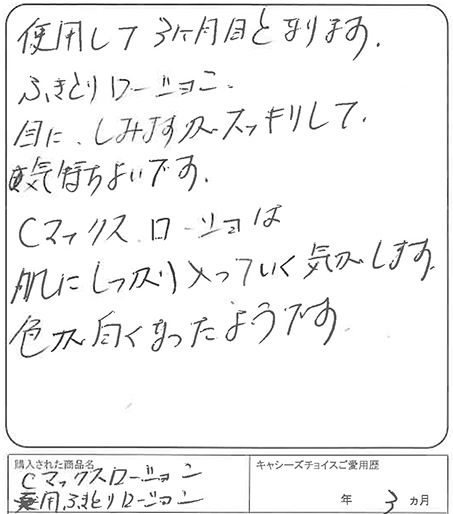 使用して3ヶ月目となります.
ふきとりローション.
目に、しみますがスッキリして.
気持ちよいです.
Cマックスローションは
肌にしっかり入っていく気がします.
色が白くなったようです
購入された商品名
Cマックスローション
薬用ふきとりローション
キャシーズチョイスご愛用歴
年 3 ヵ月